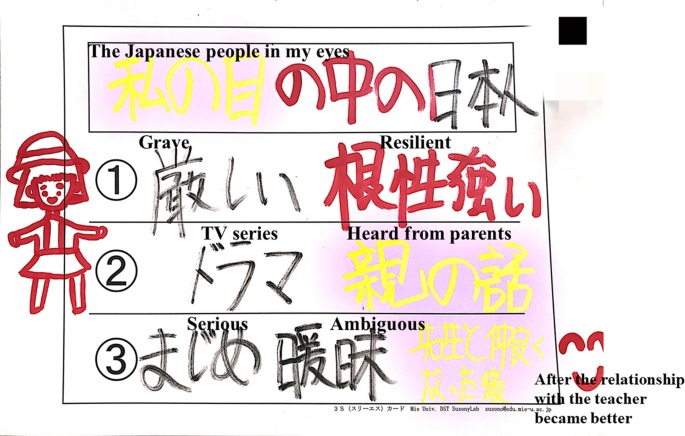 The Japanese people in my eyes
私の目の中の日本人
Grave Resilient
① 厳しい 根性強い
TV series Heard from parents
② ドラマ 親の話
Serious Ambiguous
③ まじめ 暖昧 先生と仲良く
なった後
After the relationship
with the teacher
became better
3S (スリーエス) カード Mie Univ. DST SusonyLab susono@edu.mie-u.ac.jp